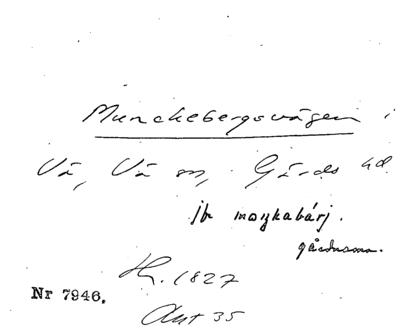 Munckebergsvägen i
Vä, Vä sn, Gärds hd.
jfr moŋkabärj.
gårdsnamn.
Hr. 1827
Nr 7946.
Akt 35